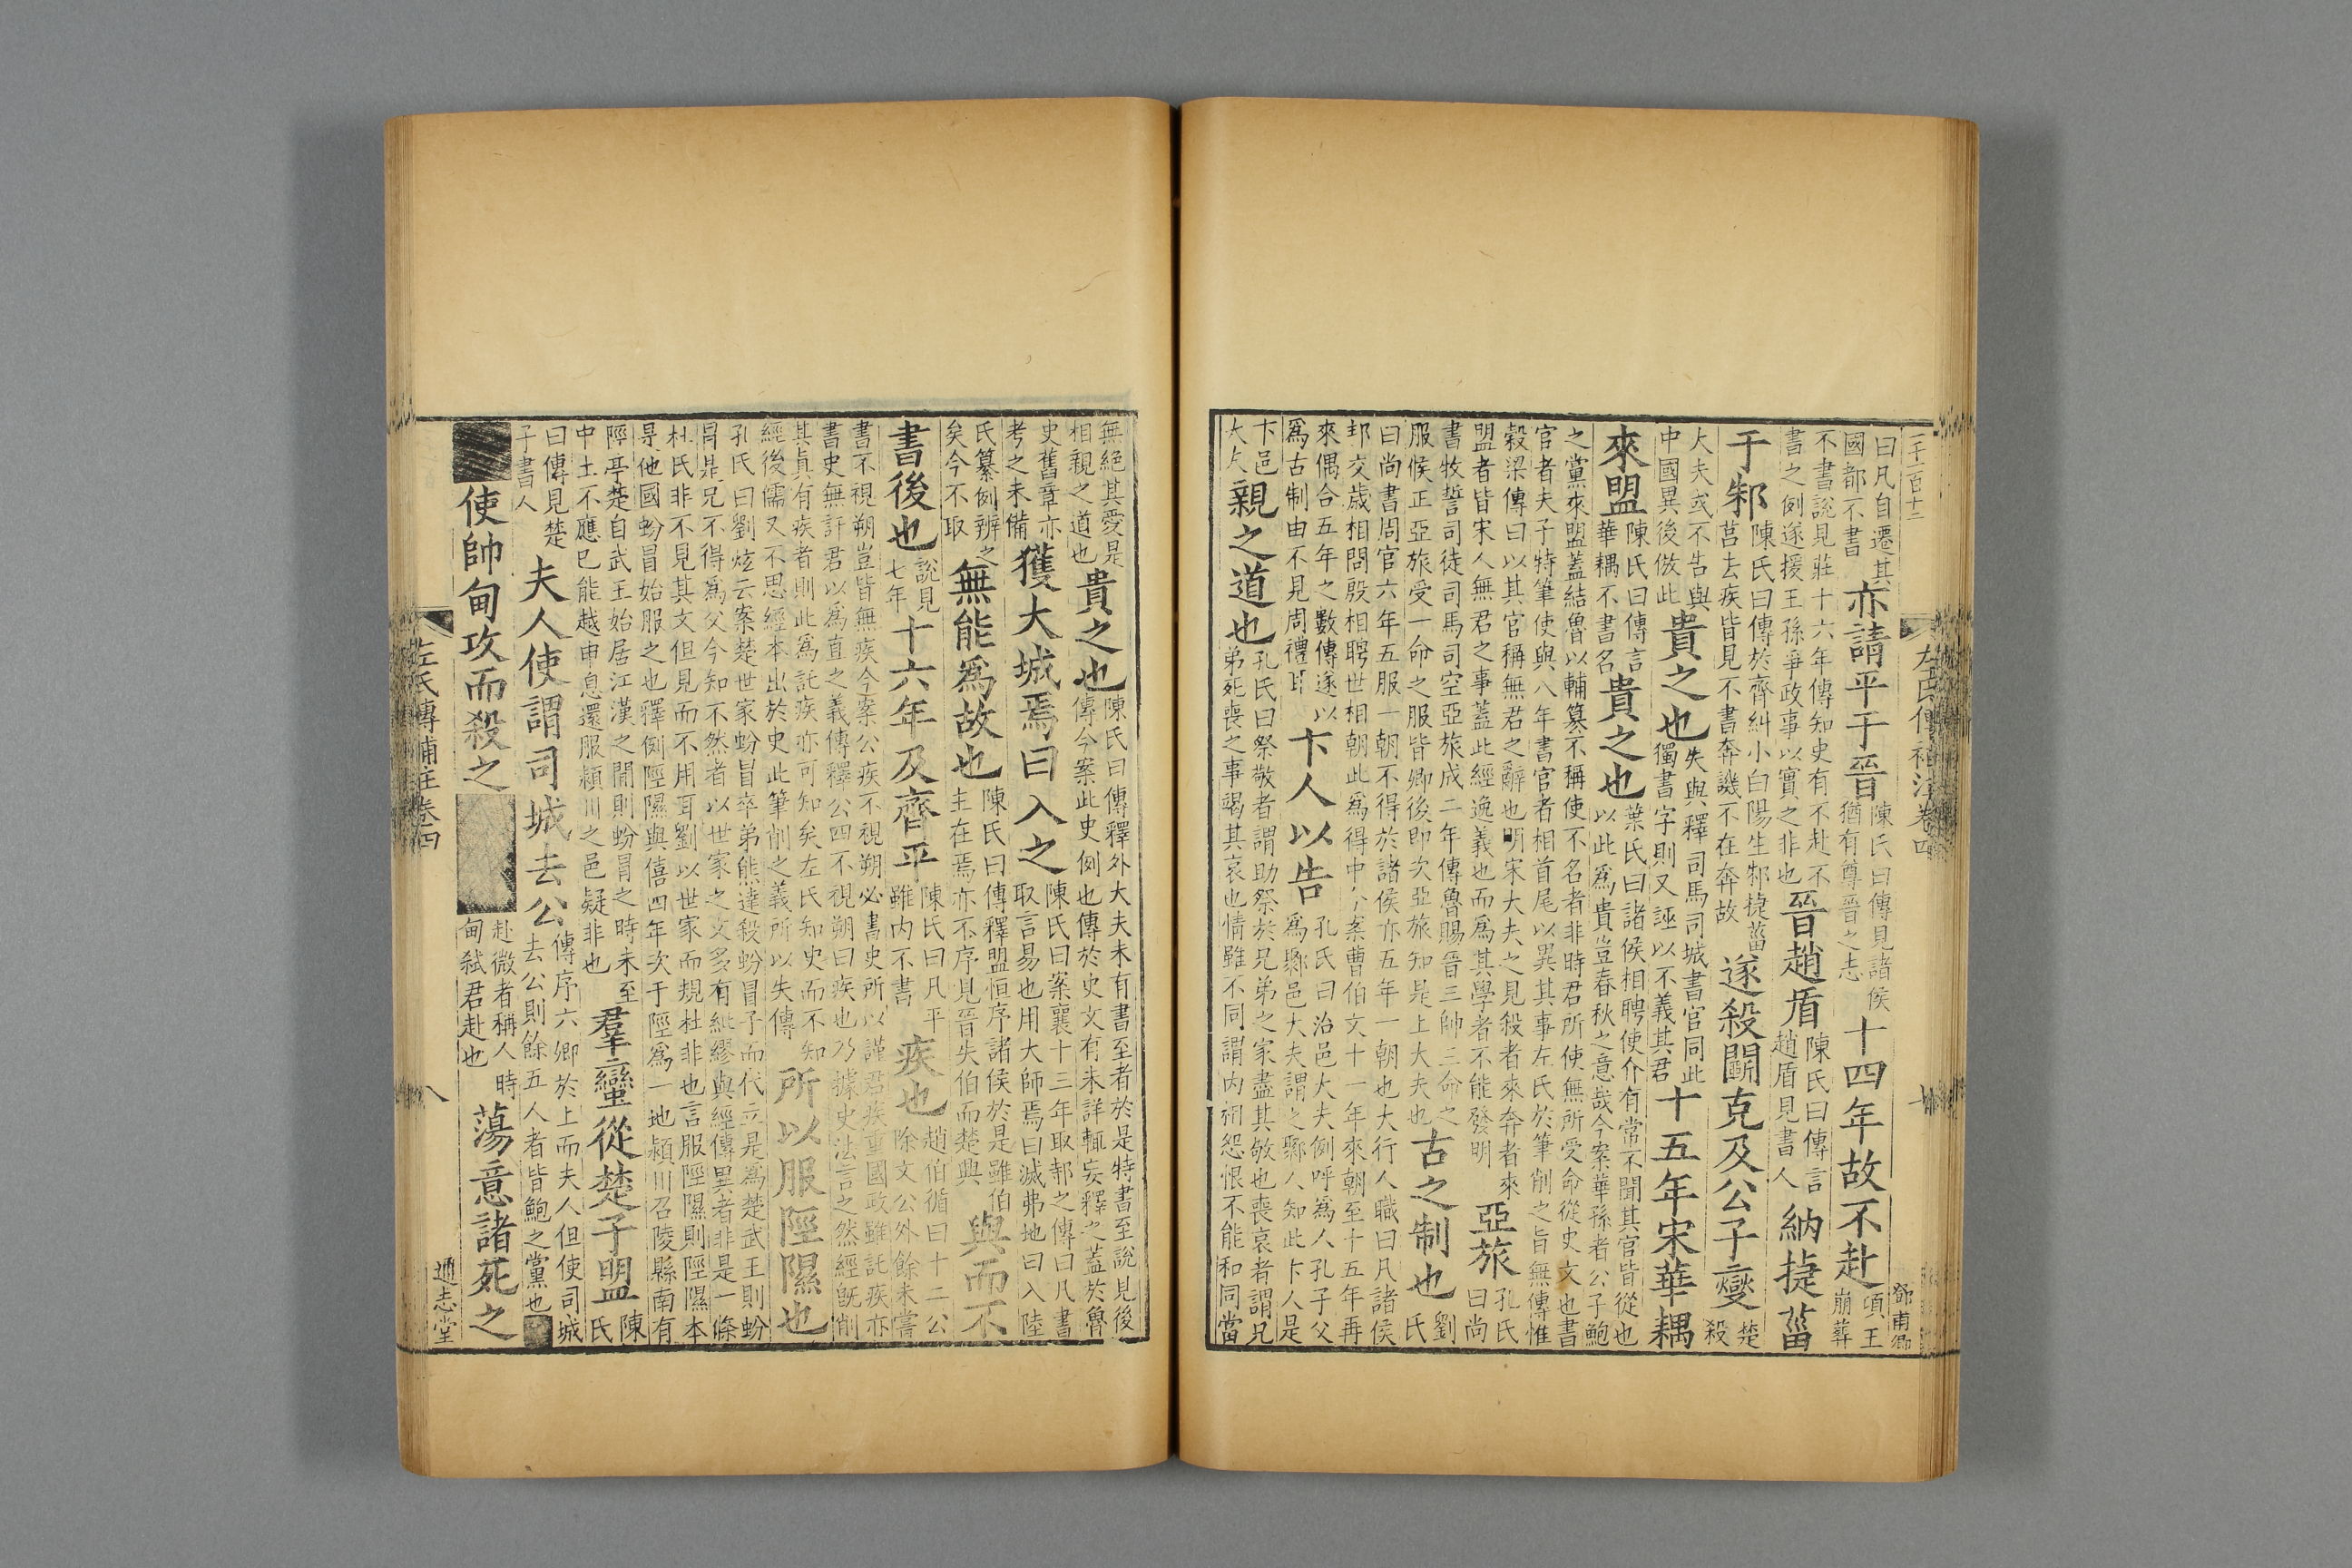 二千一百十二
左氏傳補注卷四
鄧甫卿
曰凡自遷其
國都不書
亦請平于晉
陳氏曰傳見諸侯
猶有尊晉之志
十四年故不赴
項王
崩葬
不書說見莊十六年傳知史有不赴不
書之例遂援王孫爭政事以實之非也
晉趙盾
陳氏曰傳言
趙盾見書人
納捷菑
于邾
陳氏曰傳於齊糾小白陽生邾捷菑
莒去疾皆見不書奔譏不在奔故
遂殺鬬克及公子燮
楚
殺
大夫或不告與
中國異後倣此
貴之也
失與釋司馬司城書官同此
獨書字則又誣以不義其君
十五年宋華耦
來盟
陳氏曰傳言
華耦不書名
貴之也
葉氏曰諸侯相聘使介有常不聞其官皆從也
以此爲貴豈春秋之意哉今案華孫者公子鮑
之黨來盟蓋結魯以輔篡不稱使不名者非時君所使無所受命從史文也書
官者夫子特筆使與八年書官者相首尾以異其事左氏於筆削之旨無傳惟
穀梁傳曰以其官稱無君之辭也明宋大夫之見殺者來奔者來
盟者皆宋人無君之事蓋此經逸義也而爲其學者不能發明
亞旅
孔氏
曰尚
書牧誓司徒司馬司空亞旅成二年傳魯賜晉三帥三命之
服候正亞旅受一命之服皆卿後卽次亞旅知是上大夫也
古之制也
劉
氏
曰尚書周官六年五服一朝不得於諸侯亦五年一朝也大行人職曰凡諸侯
邦交歲相問殷相聘世相朝此爲得中今案曹伯文十一年來朝至十五年再
來偶合五年之數傳遂以
爲古制由不見周禮耳
卞人以告
孔氏曰治邑大夫例呼爲人孔子父
爲鄹邑大夫謂之鄹人知此卞人是
卞邑
大夫
親之道也
孔氏曰祭敬者謂助祭於兄弟之家盡其敬也喪哀者謂兄
弟死喪之事竭其哀也情雖不同謂內相怨恨不能和同當
無絕其愛是
相親之道也
貴之也
陳氏曰傳釋外大夫未有書至者於是特書至說見後
傳今案此史例也傳於史文有未詳輒妄釋之蓋於魯
史舊章亦
考之未備
獲大城焉曰入之
陳氏曰案襄十三年取邿之傳曰凡書
取言易也用大師焉曰滅弗地曰入陸
氏纂例辨之
矣今不取
無能爲故也
陳氏曰傳釋盟恒序諸侯於是雖伯
主在焉亦不序見晉失伯而楚興
與而不
書後也
說見
七年
十六年及齊平
陳氏曰凡平
雖內不書
疾也
趙伯循曰十二公
除文公外餘未嘗
書不視朔豈皆無疾今案公疾不視朔必書史所以謹君疾重國政雖託疾亦
書史無訐君以爲直之義傳釋公四不視朔曰疾也乃據史法言之然經旣削
其眞有疾者則此爲託疾亦可知矣左氏知史而不知
經後儒又不思經本出於史此筆削之義所以失傳
所以服陘隰也
孔氏曰劉炫云案楚世家蚡冒卒弟熊達殺蚡冒子而代立是爲楚武王則蚡
冒是兄不得爲父今知不然者以世家之文多有紕繆與經傳異者非是一條
杜氏非不見其文但見而不用耳劉以世家而規杜非也言服陘隰則陘隰本
是他國蚡冒始服之也釋例陘隰與僖四年次于陘爲一地潁川召陵縣南有
陘亭楚自武王始居江漢之閒則蚡冒之時未至
中土不應已能越申息還服潁川之邑疑非也
羣蠻從楚子盟
陳
氏
曰傳見楚
子書人
夫人使謂司城去公
傳序六卿於上而夫人但使司城
去公則餘五人者皆鮑之黨也
使帥甸攻而殺之
赴微者稱人時
甸弒君赴也
蕩意諸死之
左氏傳補注卷四
八
通志堂